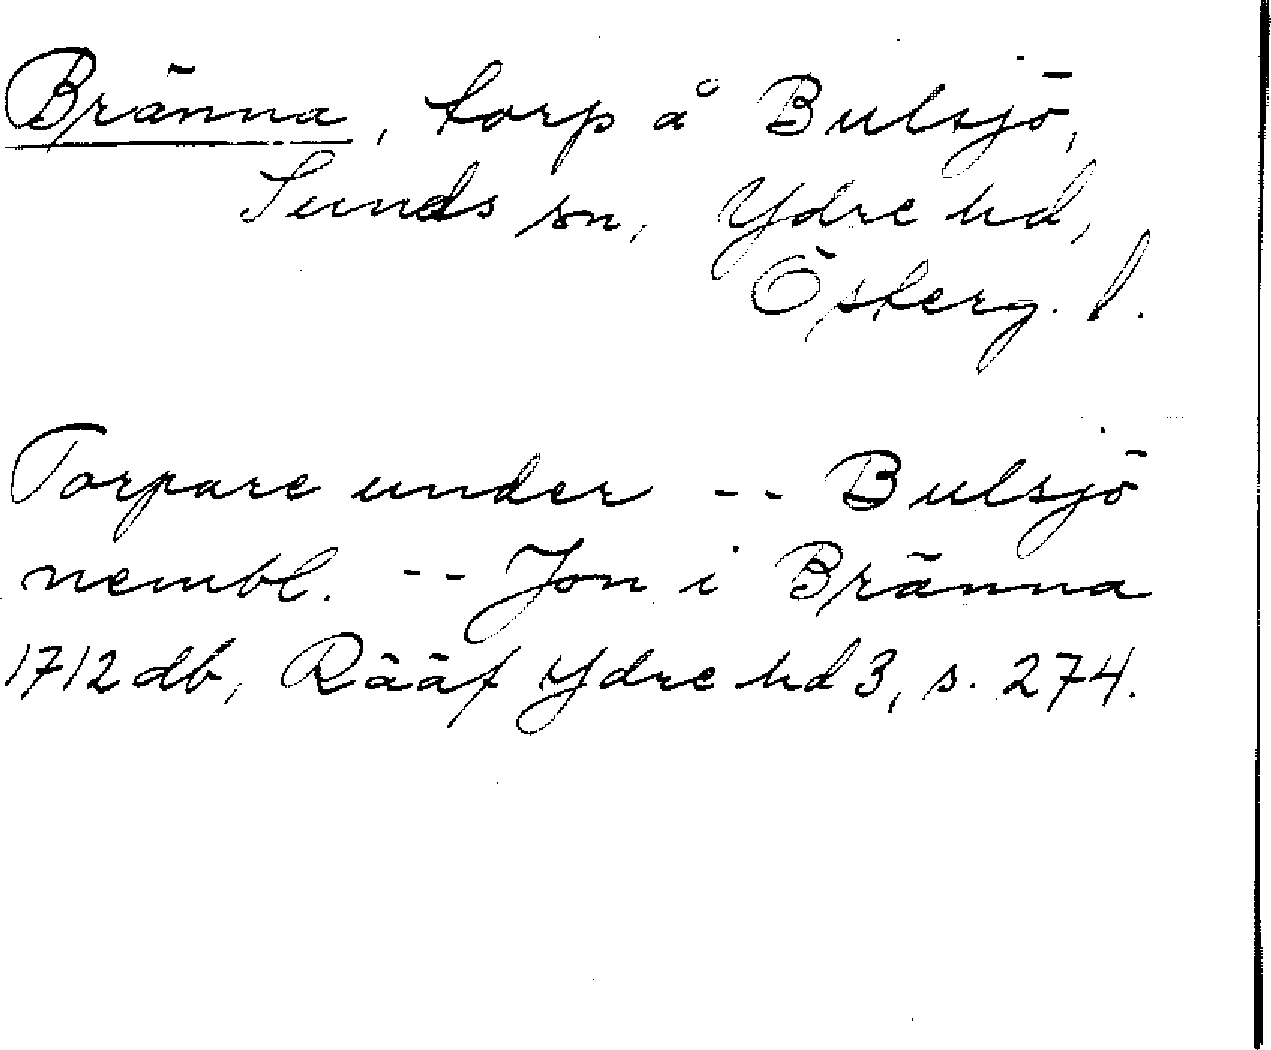 Bränna, torp å Bulsjö,
Sunds sn, Ydre hd,
Österg. l.
Torpare under -- Bulsjö
nembl. -- Jon i Bränna
1712 db, Rääf Ydre hd 3, s. 274.